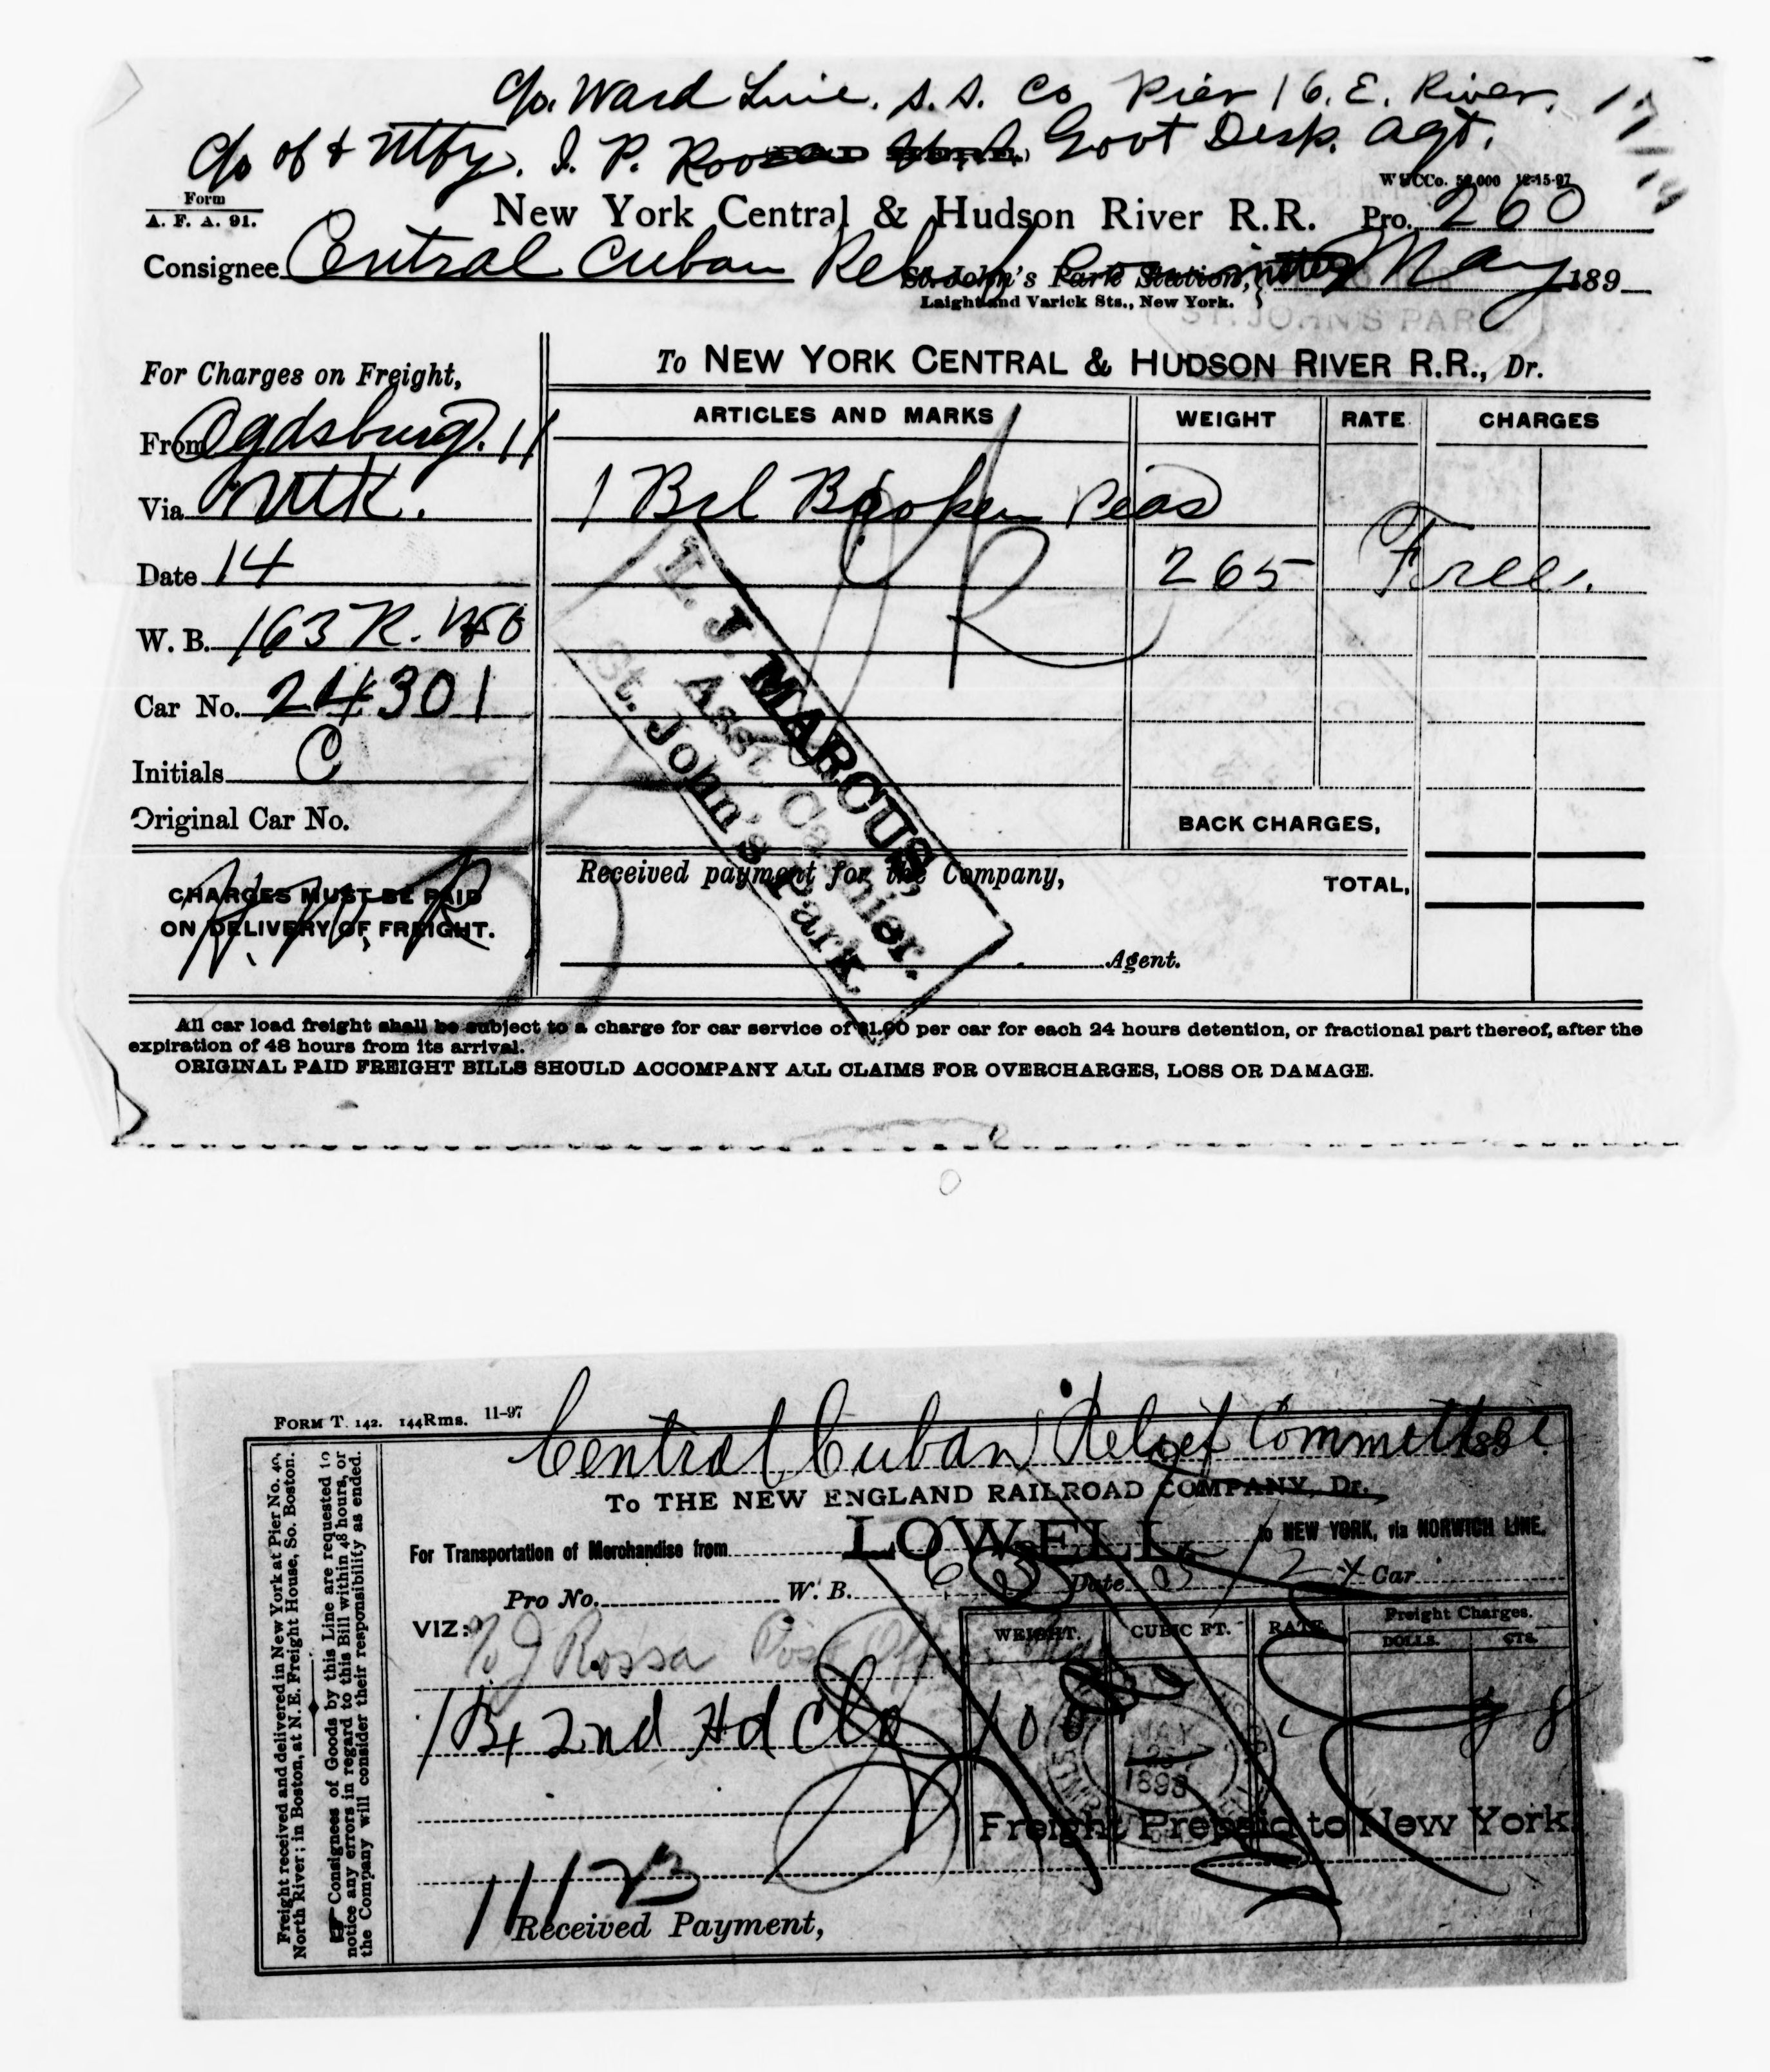 c/o. Ward Line. S. S. Co Pier 16. E. River.
c/o of & Ntfy. J. P. Govt Desp. Agt.
W H CCo. 50,000 12-15-97
Form
A. F. A. 91.
New York Central & Hudson River R.R. Pro. 260
Consignee Central Cuban Relief Committee May 189
St. John's Park Station,
Laight and Varick Sts., New York.
ST. JOHN'S PARK
For Charges on Freight,
To NEW YORK CENTRAL & HUDSON RIVER R.R., Dr.
ARTICLES AND MARKS WEIGHT RATE CHARGES
From Ogdsburg. 11
Via
1 Brl Broken Peas
Date 14
265 Free.
W. B. 163
Car No. 24301
Initials C
Original Car No.
BACK CHARGES,
L. J. MARCUS,
Asst Cashier.
St. John's Park.
CHARGES MUST BE PAID
ON DELIVERY OF FREIGHT.
Received payment for the Company,
TOTAL,
Agent.
All car load freight shall be subject to a charge for car service of $1.00 per car for each 24 hours detention, or fractional part thereof, after the
expiration of 48 hours from its arrival.
ORIGINAL PAID FREIGHT BILLS SHOULD ACCOMPANY ALL CLAIMS FOR OVERCHARGES, LOSS OR DAMAGE.
FORM T. 142. 144Rms. 11-97
Central Cuban Relief Committee 189
To THE NEW ENGLAND RAILROAD COMPANY, Dr.
LOWELL,
For Transportation of Merchandise from to NEW YORK, via NORWICH LINE.
Pro No. W. B. Date 5/24 Car
VIZ:
WEIGHT. CUBIC FT. RATE. Freight Charges.
DOLLS. CTS.
J Rossa Post Office
1 Bx 2nd Hd Clo 100
MAY
1898
Freight Prepaid to New York.
Received Payment,
Freight received and delivered in New York at Pier No. 40,
North River; in Boston, at N. E. Freight House, So. Boston.
Consignees of Goods by this Line are requested to
notice any errors in regard to this Bill within 48 hours, or
the Company will consider their responsibility as ended.